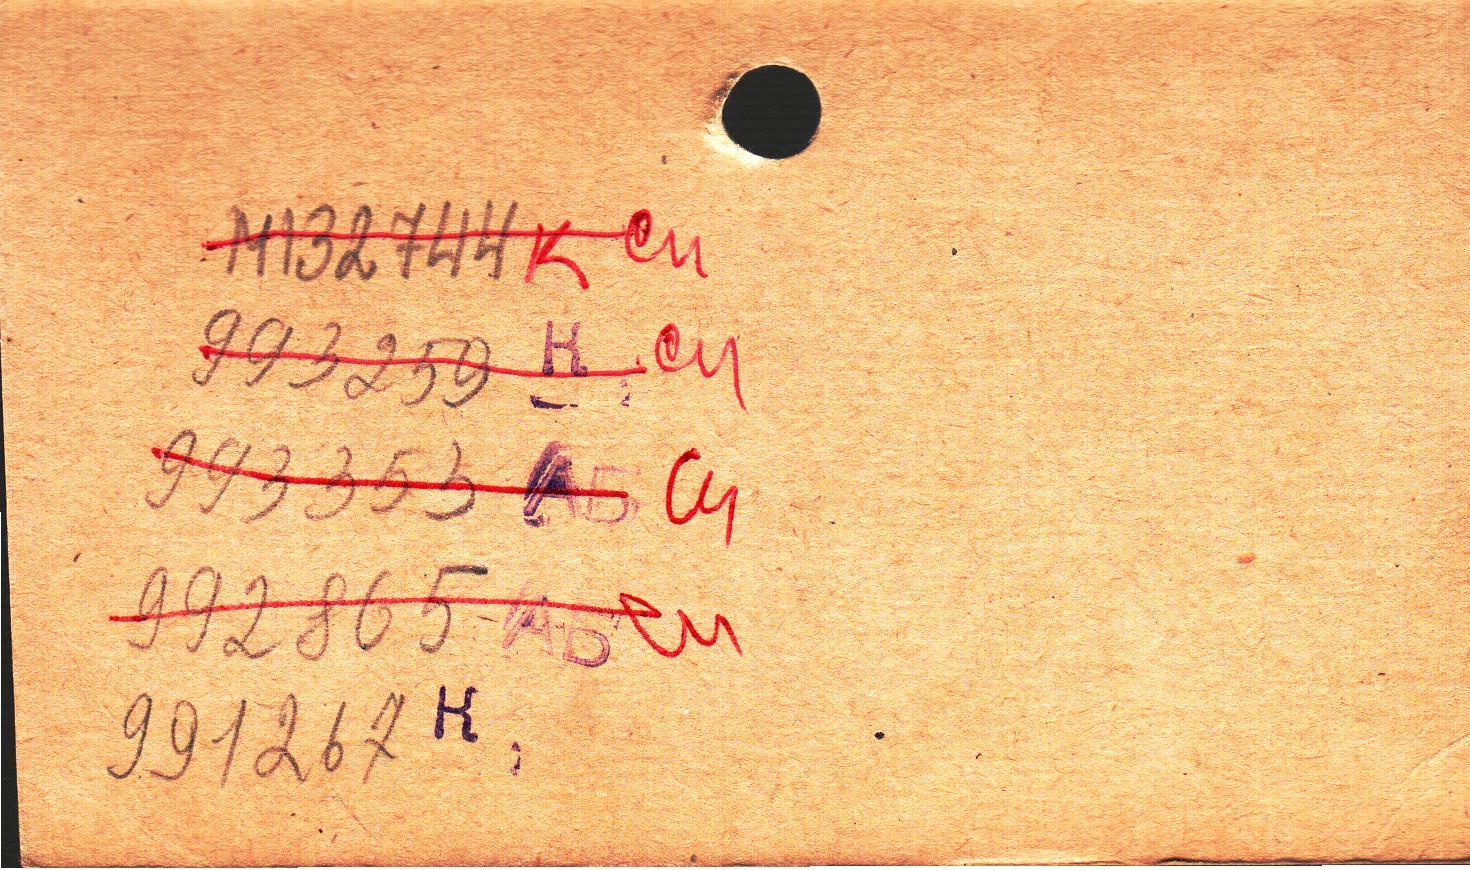 М132744 К си
993259 К си
993353 АБ си
992865 АБ си
991267 К